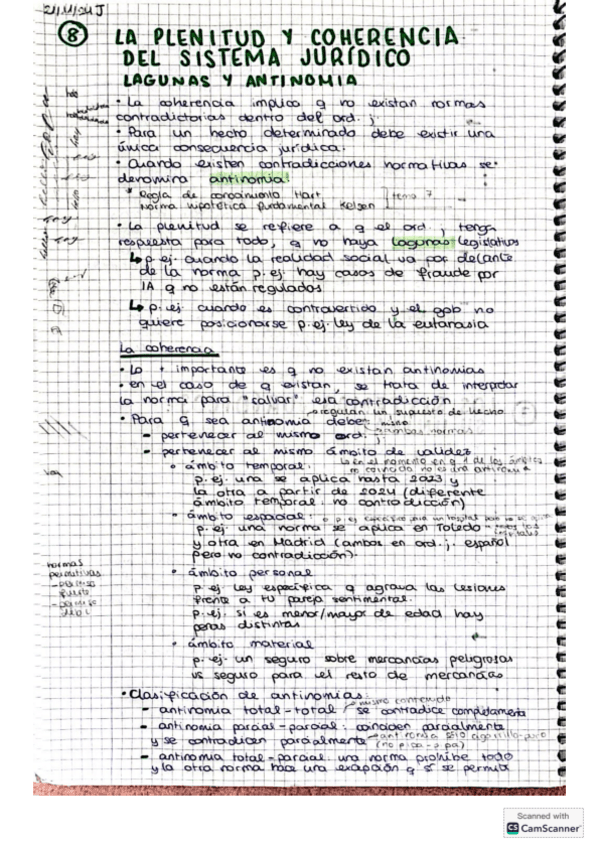 8
LA PLENITUD Y COHERENCIA
DEL SISTEMA JURÍDICO
LAGUNAS Y ANTINOMIA
• La coherencia implica q no existan normas
contradictorias dentro del ord. j.
• Para un hecho determinado debe existir una
única consecuencia jurídica.
• Cuando existen contradicciones normativas se
denomina antinomia.
Regla de conocimiento Hart
Norma hipotética fundamental Kelsen
tema 7
• La plenitud se refiere a q el ord. j tenga
respuesta para todo, q no haya lagunas legislativas
↳ p. ej. cuando la realidad social va por delante
de la norma p. ej. hay casos de fraude por
IA q no están regulados
↳ p. ej. cuando es controvertido y el gob no
quiere posicionarse p. ej. ley de la eutanasia
La coherencia
• Lo + importante es q no existan antinomias
• en el caso de q existan, se trata de interpretar
la norma para "salvar" esa contradicción
→ regulan un supuesto de hecho
• Para q sea antinomia debe:
- pertenecer al mismo ord. j
ambas normas
- pertenecer al mismo ámbito de validez
• ámbito temporal:
p. ej. una se aplica hasta 2023 y
la otra a partir de 2024 (diferente
ámbito temporal: no contradicción)
• ámbito espacial:
p. ej. una norma se aplica en Toledo
y otra en Madrid (ambas en ord. j. español
pero no contradicción).
normas
permisivas
• ámbito personal
p. ej ley específica q agrava las lesiones
frente a tu pareja sentimental.
p. ej. si es menor/mayor de edad hay
penas distintas
• ámbito material
p. ej. un seguro sobre mercancías peligrosas
vs seguro para el resto de mercancías
• Clasificación de antinomias:
→ mismo contenido
- antinomia total-total: se contradice completamente
- antinomia parcial-parcial: coinciden parcialmente
y se contradicen parcialmente
- antinomia total-parcial: una norma prohíbe todo
y la otra norma hace una excepción q sí se permite
Scanned with
CS CamScanner